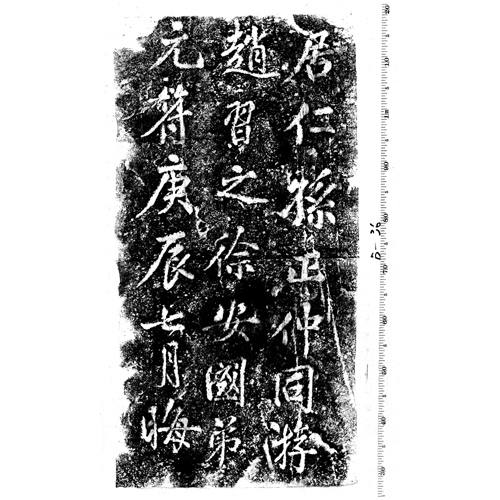 元符庚辰七月晦
趙習之徐安國弟
居仁孫正仲同游